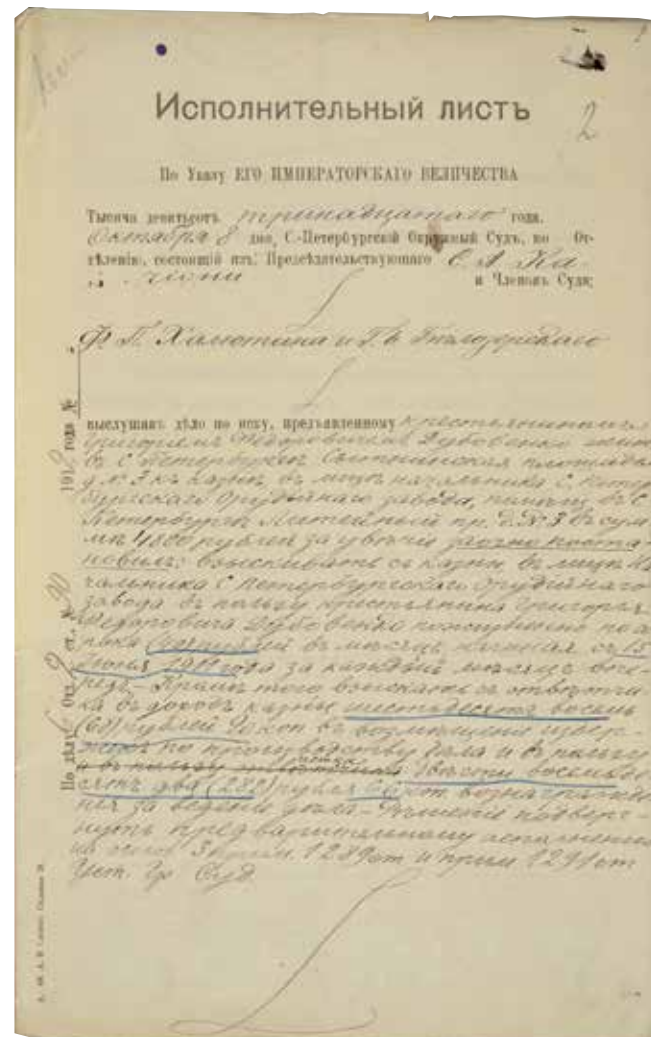 2
Исполнительный листъ
По Указу ЕГО ИМПЕРАТОРСКАГО ВЕЛИЧЕСТВА
Тысяча девятьсотъ тринадцатаго года.
Октября 8 дня, С.-Петербургскій Окружный Судъ, по От-
дѣленію, состоящій изъ: Предсѣдательствующаго С. А. Ка
и Членовъ Суда:
Ф. П. Халютина и
выслушавъ дѣло по иску, предъявленному крестьяниномъ
Григоріемъ Ѳедоровичемъ Дубовенко
въ С Петербургѣ Сытнинская площадь
д. № 3 къ казнѣ въ лицѣ начальника С. Петер
бургскаго Орудійнаго завода, въ С
Петербургѣ Литейный пр. д. № 3 въ сум
мѣ 4800 рублей за увѣчье заочно поста-
новилъ: взыскивать съ казны въ лицѣ На
чальника С Петербургскаго Орудійнаго
завода въ пользу крестьянина Григорія
Ѳедоровича Дубовенко пожизненно по
рублей въ мѣсяцъ начиная съ 15
Іюня 1911 года за каждый мѣсяцъ впе-
редъ. Кромѣ того взыскать съ отвѣтчи-
ка въ доходъ казны шестьдесятъ восемь
(68) рублей коп въ возмѣщеніе издер-
жекъ по производству дѣла и въ пользу
и въ пользу истца двѣсти восемьде
сятъ два (282) рубля 66 коп вознагражде
нія за веденіе дѣла. Рѣшеніе подверг-
нуть предварительному исполненію
на основ 3 прим. 1289 ст и прим 1291 ст
Уст. Гр Суд.
По дѣлу Отд. ст. № 90 191 года №